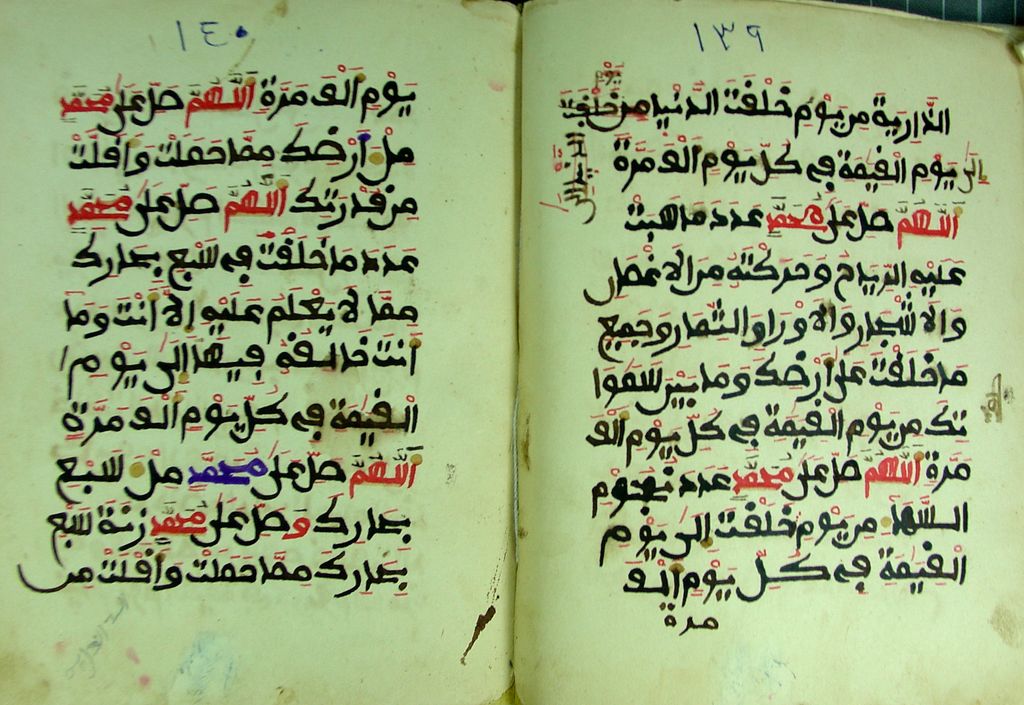 ١٣٩
الذَّارِيَةُ مِن يَوْمِ خَلَفْتَ الدُّنْيا مِن خَلْفِهَا
إلى يَوْمِ الْقِيَمَةِ فِي كُلِّ يَوْمٍ الْفَ مَرَّةً
اللَّهُمَّ صَلِّ عَلَى مُحَمَّدٍ عَدَدَ مَا هَبَّتْ
عَلَيْهِ الرِّيَاحُ وَحَرَكَتْهُ مِنَ الاَ غْصَانِ
وَالاَ شْجَارِ وَالاَ وْرَاقِ وَالثِّمَارِ وَجَمِيعِ
مَا خَلَقْتَ عَلَى أَرْضِكَ وَمَا بَيْنَ سَمَوَا
تِكَ مِن يَوْمِ الْقِيَمَةِ فِي كُلِّ يَوْمٍ الْفَ
مَرَّةً اللَّهُمَّ صَلِّ عَلَى مُحَمَّدٍ عَدَدَ نُجُومِ
السَّمَاءِ مِن يَوْمِ خَلَقْتَ إِلَى يَوْمِ
الْقِيَمَةِ فِي كُلِّ يَوْمٍ الْفَ
مرة
١٤٠
يَوْمٍ الْفَ مَرَّةً اللَّهُمَّ صَلِّ عَلَى مُحَمَّدٍ
مِلْءَ أَرْضِكَ مِمَّا حَمَلَتْ وَاَقَلَّتْ
مِن قُدْرَتِكَ اللَّهُمَّ صَلِّ عَلَى مُحَمَّدٍ
عَدَدَ مَا خَلَقْتَ فِي سَبْعِ بِحَارِكَ
مِمَّا لاَ يَعْلَمُ عَلَيْهِ الاَّ أَنْتَ وَمَا
أَنْتَ خَالِقُهُ فِيهَا إِلَى يَوْمِ ا
لْقِيَمَةِ فِي كُلِّ يَوْمٍ الْفَ مَرَّةً
اللَّهُمَّ صَلِّ عَلَى مُحَمَّدٍ مِلْءَ سَبْعِ
بِحَارِكَ وَصَلِّ عَلَى مُحَمَّدٍ زِنَةَ سَبْعِ
بِحَارِكَ مِمَّا حَمَلَتْ وَاَقَلَّتْ مِن